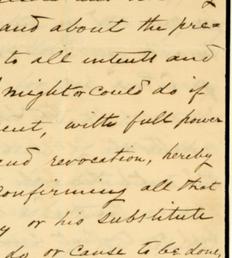 and about the pre=
to all intents and
might or could do if
ent, with full power
and revocation, hereby
confirming all that
y or his substitute
do or cause to be done,